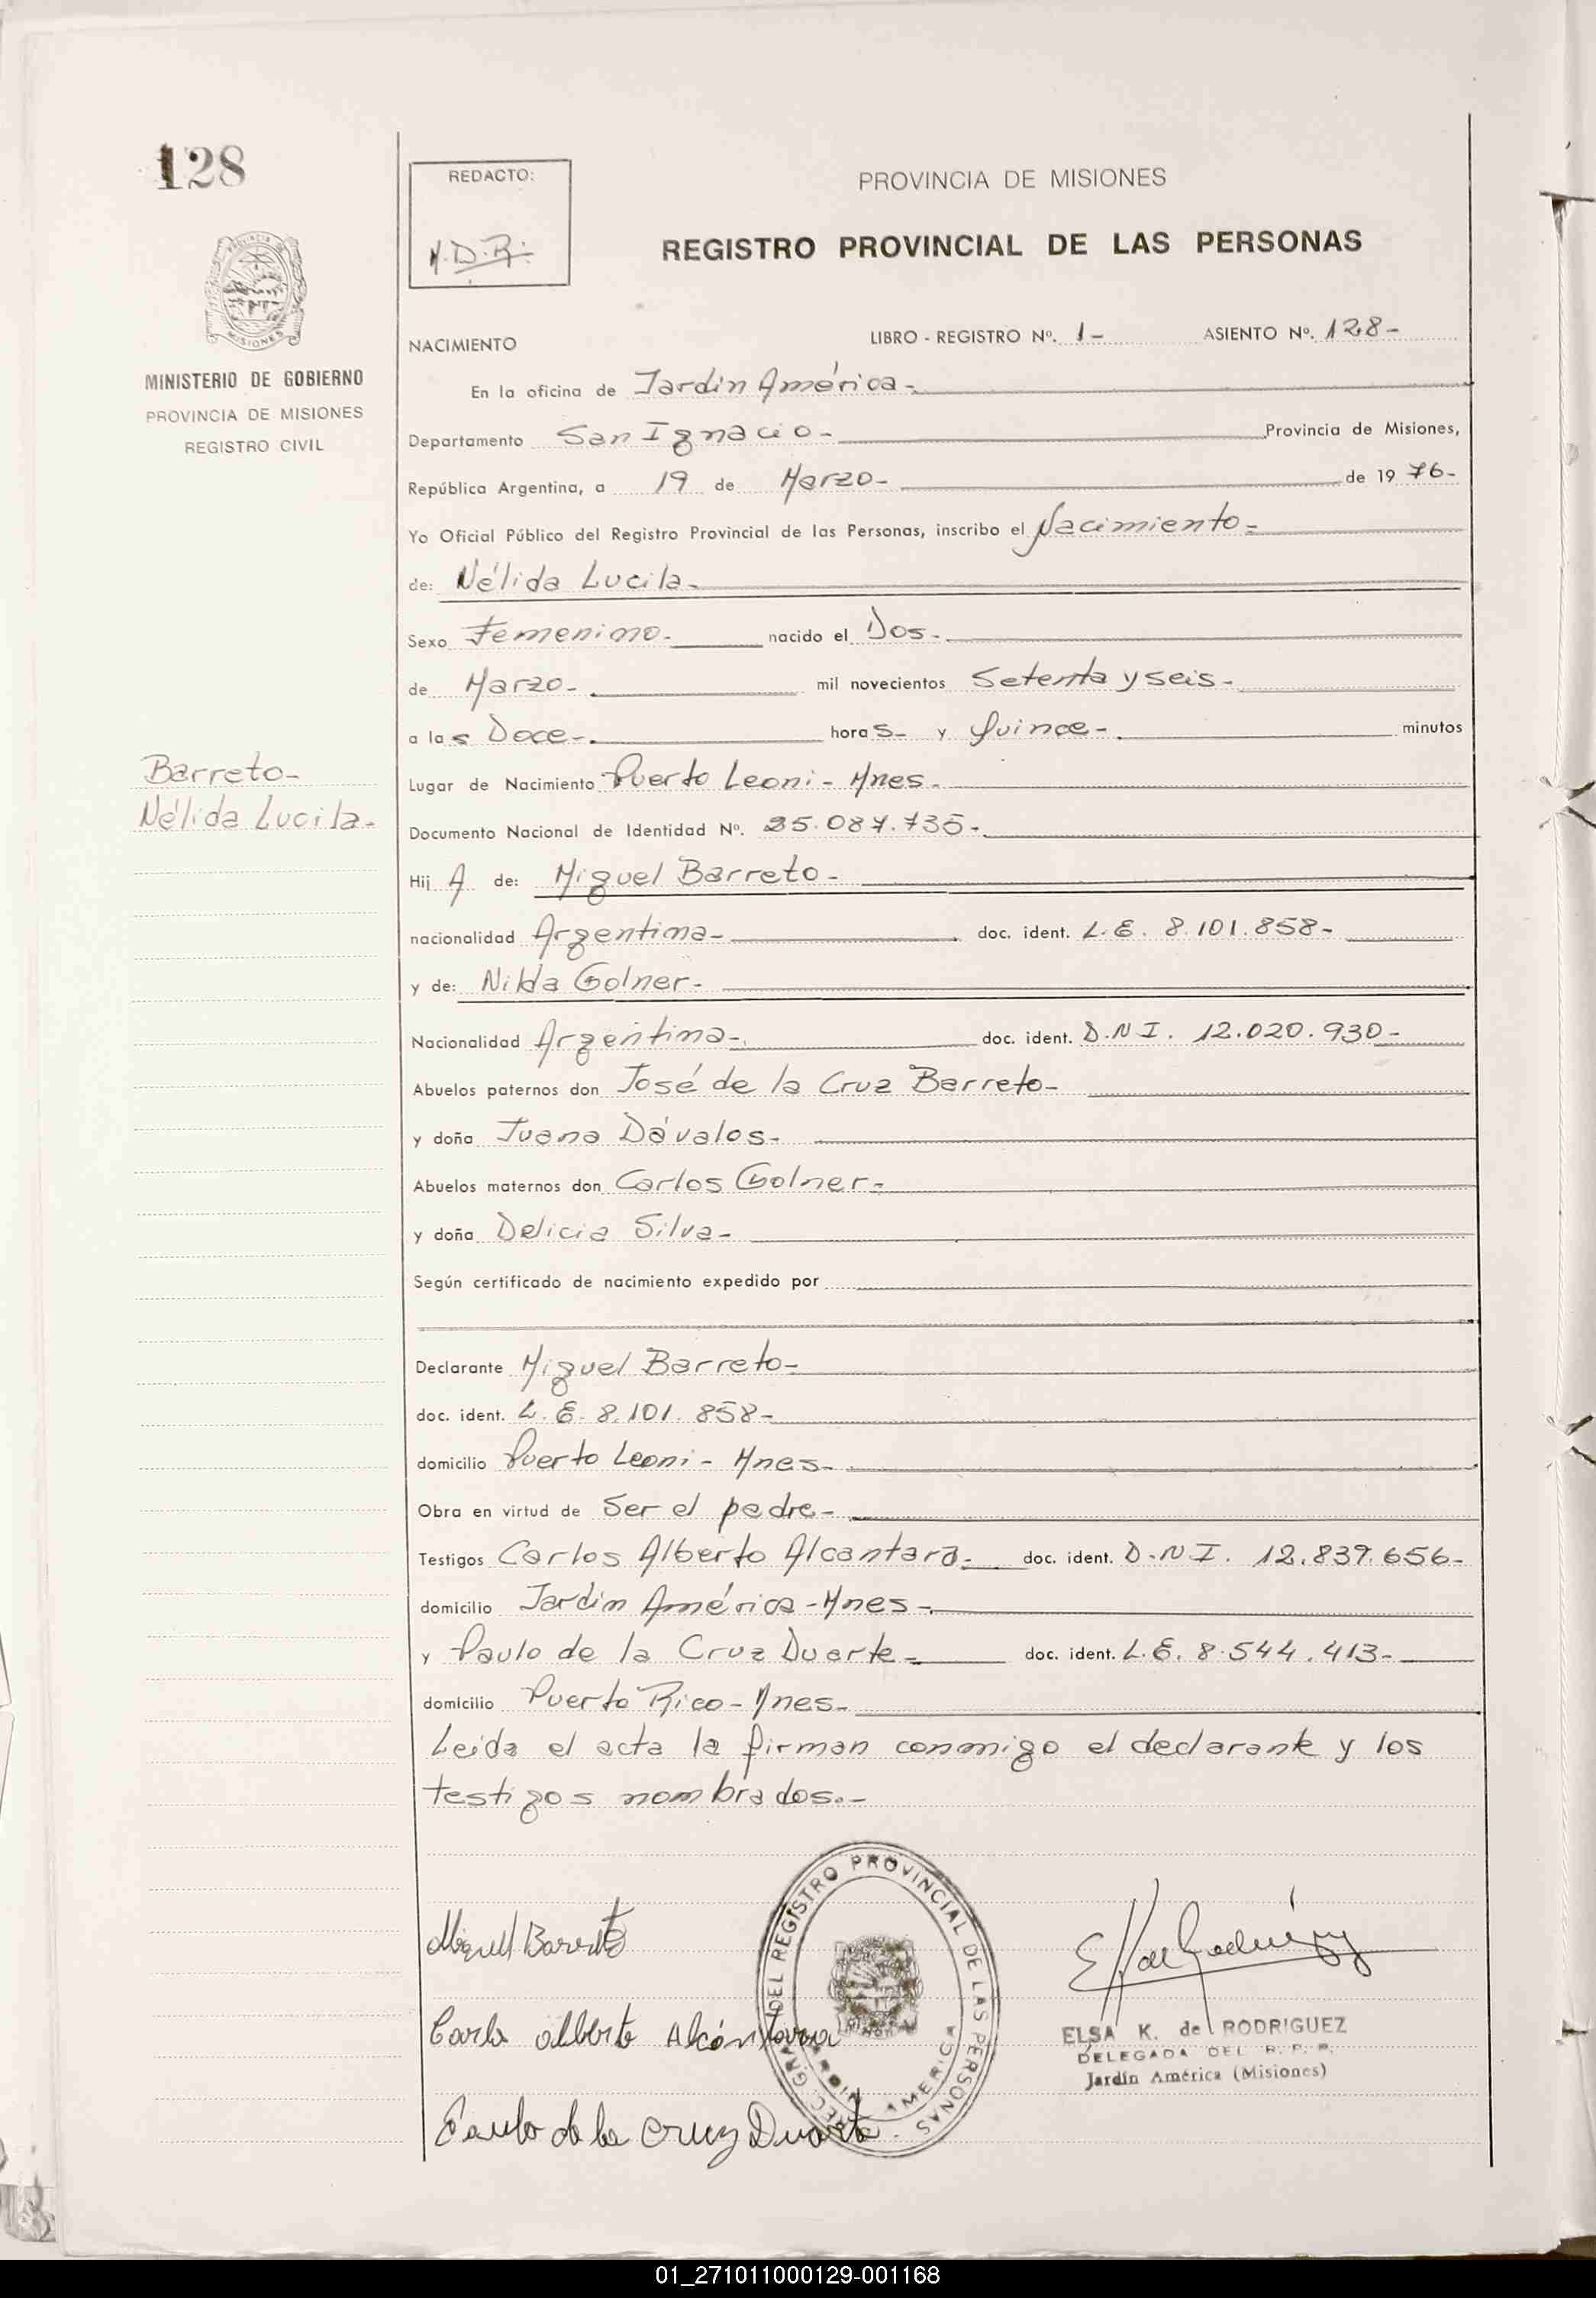 128
REDACTO:
M.D.R.
PROVINCIA DE MISIONES
REGISTRO PROVINCIAL DE LAS PERSONAS
PROVINCIA DE
MISIONES
MINISTERIO DE GOBIERNO
PROVINCIA DE MISIONES
REGISTRO CIVIL
NACIMIENTO LIBRO - REGISTRO Nº. 1- ASIENTO Nº. 128-
En la oficina de Jardín América-
Departamento San Ignacio- Provincia de Misiones,
República Argentina, a 19 de Marzo- de 1976-
Yo Oficial Público del Registro Provincial de las Personas, inscribo el Nacimiento-
de: Nélida Lucila-
Sexo Femenino- nacido el Dos-
de Marzo- mil novecientos Setenta y seis-
a las Doce- horas- y Quince- minutos
Barreto-
Nélida Lucila-
Lugar de Nacimiento Puerto Leoni - Mnes-
Documento Nacional de Identidad Nº. 25.087.735-
Hij A de: Miguel Barreto-
nacionalidad Argentina- doc. ident. L.E. 8.101.858-
y de: Nilda Golner-
Nacionalidad Argentina- doc. ident. D.N.I. 12.020.930-
Abuelos paternos don José de la Cruz Barreto-
y doña Juana Dávalos-
Abuelos maternos don Carlos Golner-
y doña Delicia Silva-
Según certificado de nacimiento expedido por
Declarante Miguel Barreto-
doc. ident. L.E. 8.101.858-
domicilio Puerto Leoni - Mnes-
Obra en virtud de Ser el padre-
Testigos Carlos Alberto Alcantara- doc. ident. D.N.I. 12.839.656-
domicilio Jardín América-Mnes-
y Paulo de la Cruz Duarte- doc. ident. L.E. 8.544.413-
domicilio Puerto Rico-Mnes-
Leída el acta la firman conmigo el declarante y los
testigos nombrados.-
DEL REGISTRO PROVINCIAL DE LAS PERSONAS
AMERICA
Miguel Barreto
Carlo alberto Alcántara
Paulo de la Cruz Duarte
E K de Rodríguez
ELSA K. de RODRIGUEZ
DELEGADA DEL R. P. P.
Jardín América (Misiones)
01_271011000129-001168